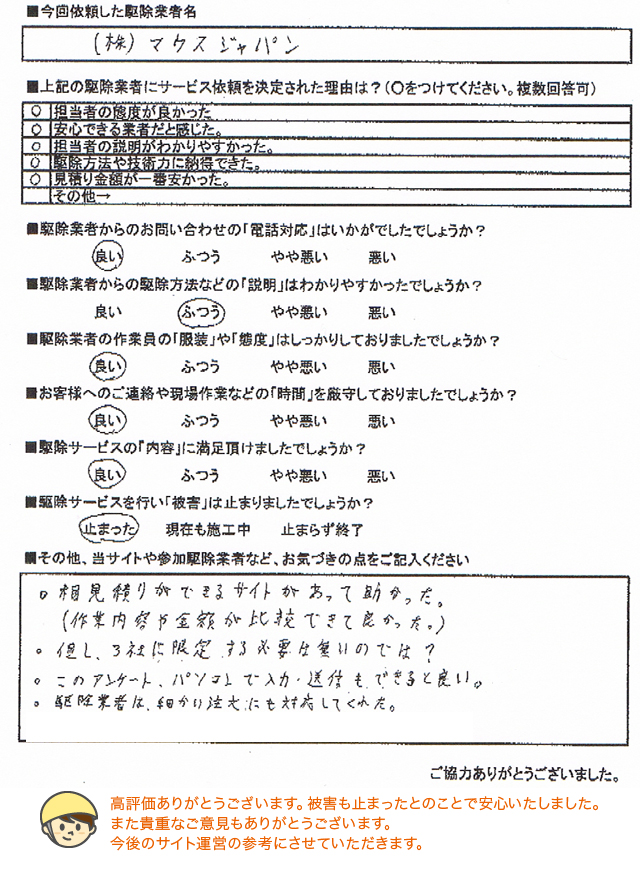 ■今回依頼した駆除業者名
(株)マウスジャパン
■上記の駆除業者にサービス依頼を決定された理由は？(○をつけてください。複数回答可)
○ 担当者の態度が良かった
○ 安心できる業者だと感じた。
○ 担当者の説明がわかりやすかった。
○ 駆除方法や技術力に納得できた。
○ 見積り金額が一番安かった。
その他→
■駆除業者からのお問い合わせの「電話対応」はいかがでしたでしょうか？
良い ふつう やや悪い 悪い
■駆除業者からの駆除方法などの「説明」はわかりやすかったでしょうか？
良い ふつう やや悪い 悪い
■駆除業者の作業員の「服装」や「態度」はしっかりしておりましたでしょうか？
良い ふつう やや悪い 悪い
■お客様へのご連絡や現場作業などの「時間」を厳守しておりましたでしょうか？
良い ふつう やや悪い 悪い
■駆除サービスの「内容」に満足頂けましたでしょうか？
良い ふつう やや悪い 悪い
■駆除サービスを行い「被害」は止まりましたでしょうか？
止まった 現在も施工中 止まらず終了
■その他、当サイトや参加駆除業者など、お気づきの点をご記入ください
○相見積りができるサイトがあって助かった。
(作業内容や金額が比較できて良かった。)
○但し、3社に限定する必要は無いのでは？
○このアンケート、パソコンで入力・送信もできると良い。
○駆除業者は、細かい注文にも対応してくれた。
ご協力ありがとうございました。
高評価ありがとうございます。被害も止まったとのことで安心いたしました。
また貴重なご意見もありがとうございます。
今後のサイト運営の参考にさせていただきます。